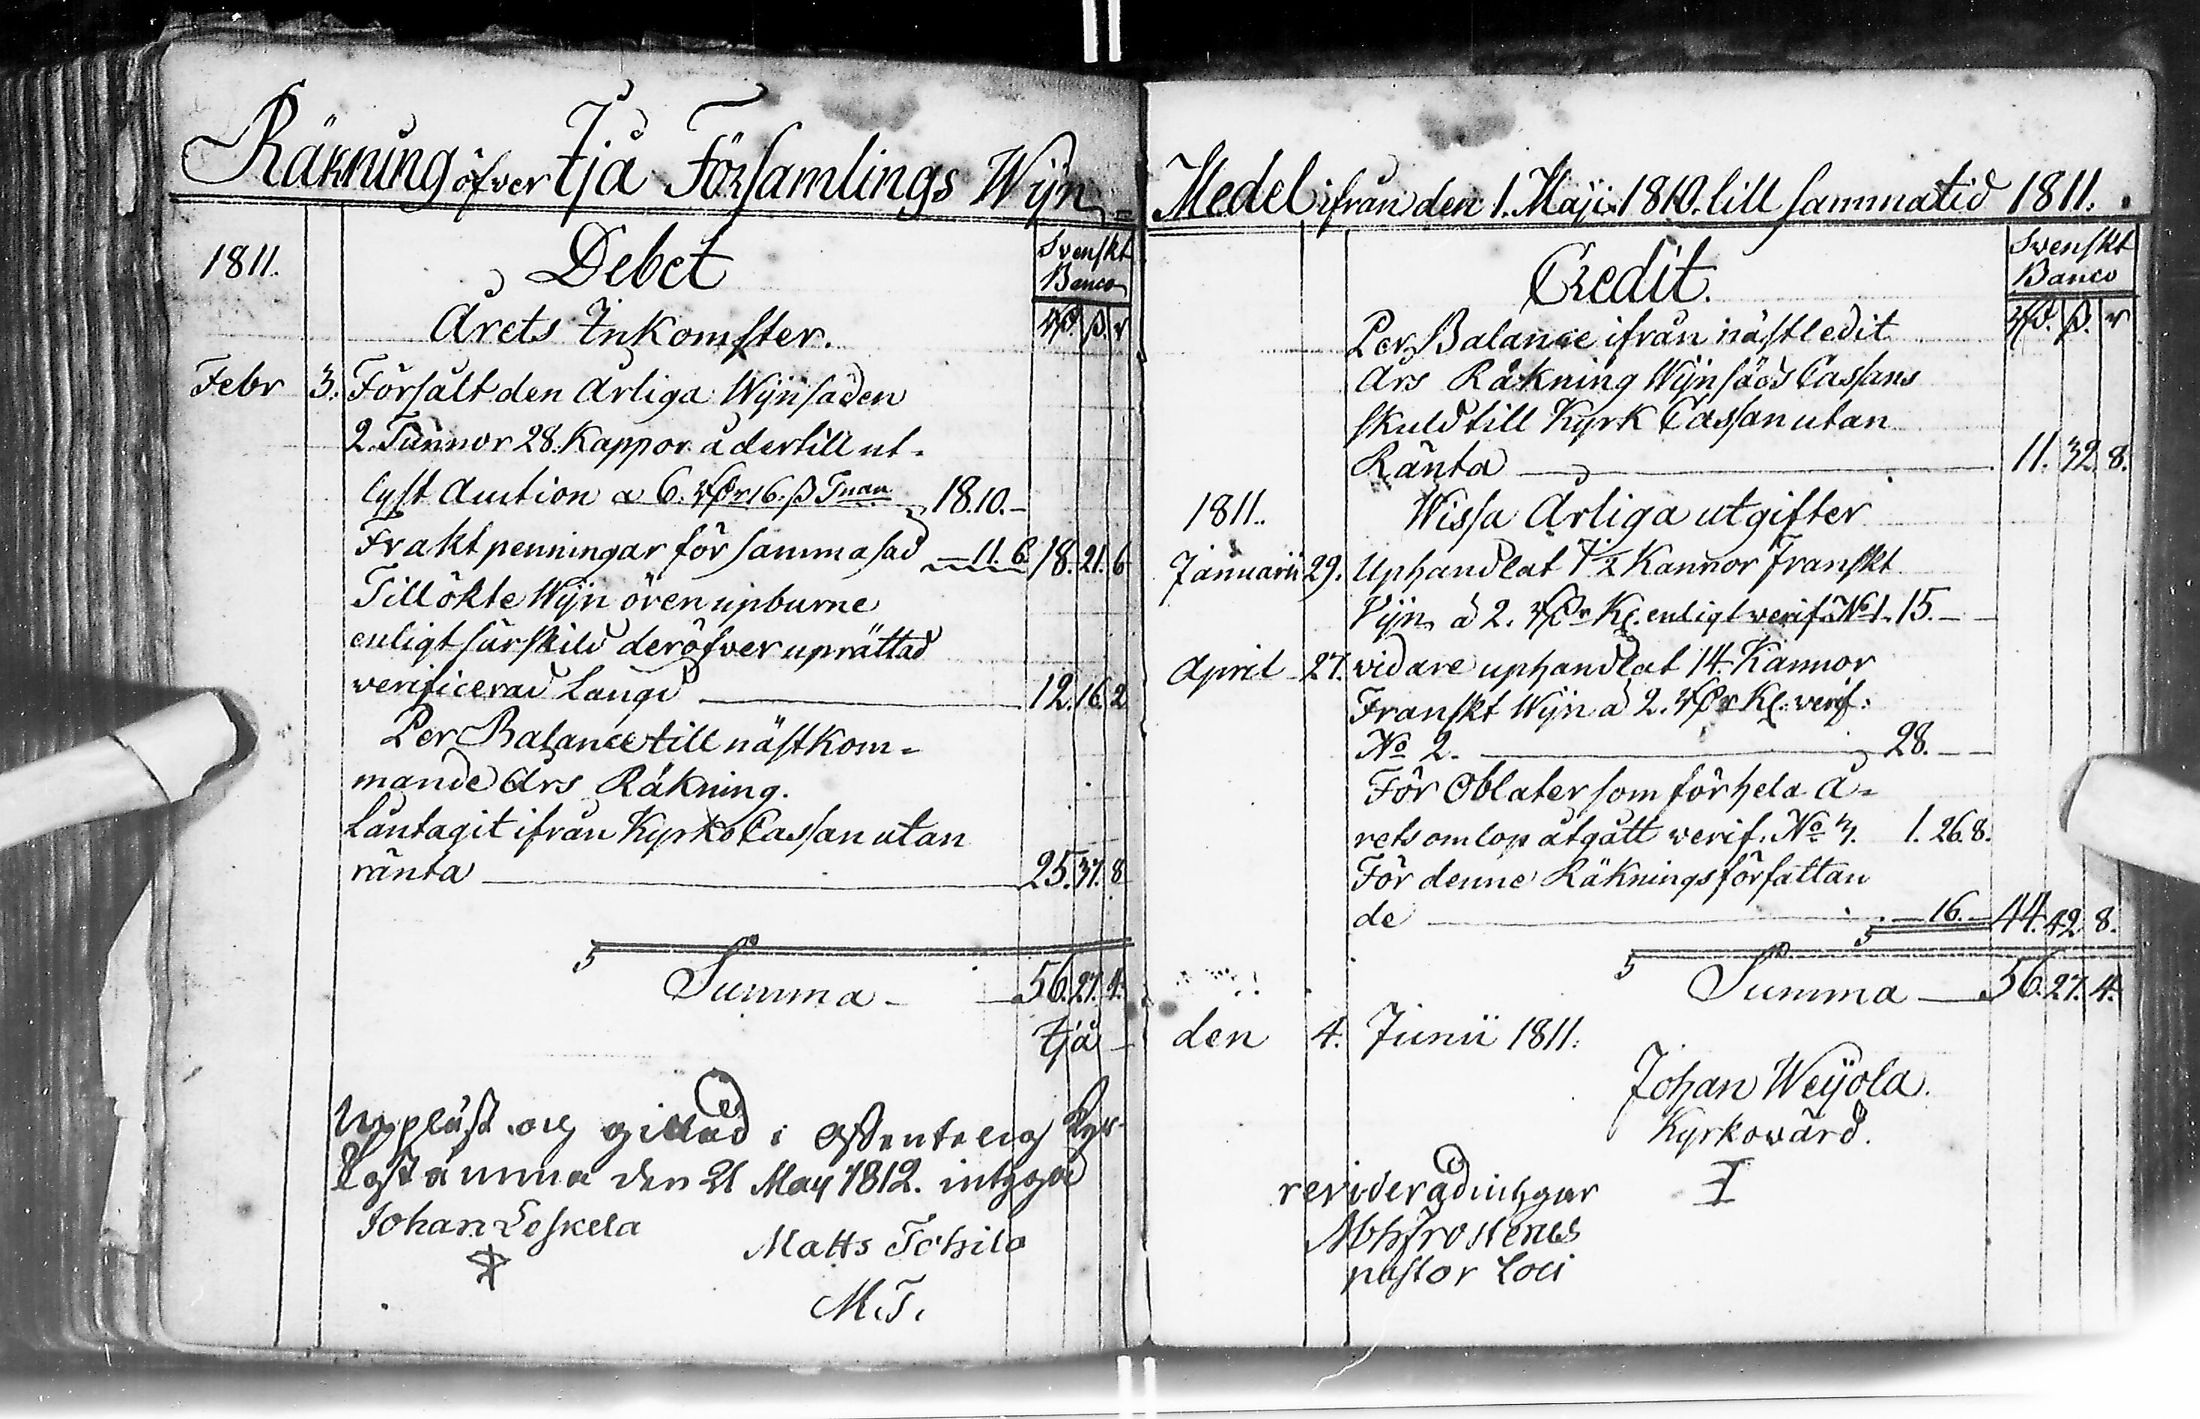 Räkning öfver Ijå Församlings Wijn=
1811.
Debet
Svenskt
Banco
Årets Inkomster.
Rd. ß. r
Febr 3. Försält den Årliga Wijnsäden
2. Tunnor 28. Kappor å dertill ut=
lyst Auction a 6. Rdr 16. ß Tunn 18.10.-
Frakt penningar för samma säd -11.6 18.21.6
Tillökte Wijn ören upburne
enligt särskild deröfver uprättad
verificerad Längd 12.16.2
Per Balance till nästkom=
mande Års Räkning.
Låntagit ifrån Kyrko Cassan utan
ränta 25.37.8
Summa 56.27.4.
Ijå
Uppläst och gillad i offentelig Kyr-
kostämma den 21 May 1812. intyga
Johan Leskela
Matts Tohila
M.T.
Medel ifrån den 1. Maji 1810. till samma tid 1811.
Svenskt
Banco
Credit.
Rd. ß. r
Per Balance ifrån nästledit
års Räkning Wijnsäds Cassans
skuld till Kyrk Cassan utan
Ränta 11.32.8.
1811.
Wissa Årliga utgifter
Januarii 29. Uphandlat 7 1/2 Kannor Franskt
Vijn à 2. Rdr K. enligt verif. No 1. 15.--
April 27. vidare uphandlat 14. Kannor
Franskt Wijn a 2. Rdr K. verif:
No 2. 28.--
För Oblater som för hela å=
rets omlop åtgått verif. No 3. 1.26.8.
För denne Räknings författan
de -16.- 44.42.8.
Summa 56.27.4.
den 4. Junii 1811.
Johan Weijola.
Kyrkovärd.
reviderad intygar
pastor Loci